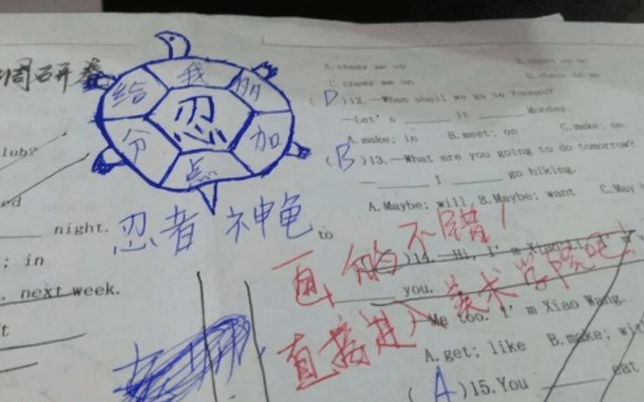 调研卷
给 我
分 忍 加
点
忍者神龟
画的不错!
直接进入美术学院吧!
lub?
ed
night.
; in
next week.
t
to
A. cheer me up
C. cheer me on
( D )12. —When shall we go to
—Let's ______ it ______ Monday.
A. make; in B. meet; on C. make; on
( B )13. —What are you going to do tomorrow?
— ______ I ______ go hiking.
A. Maybe; will B. Maybe; want C. May
)14. —Hi, I'm Xiao Li. I'm
you.
—Me too. I'm Xiao Wang.
A. get; like B. make; wit
( A )15. You ______ eat